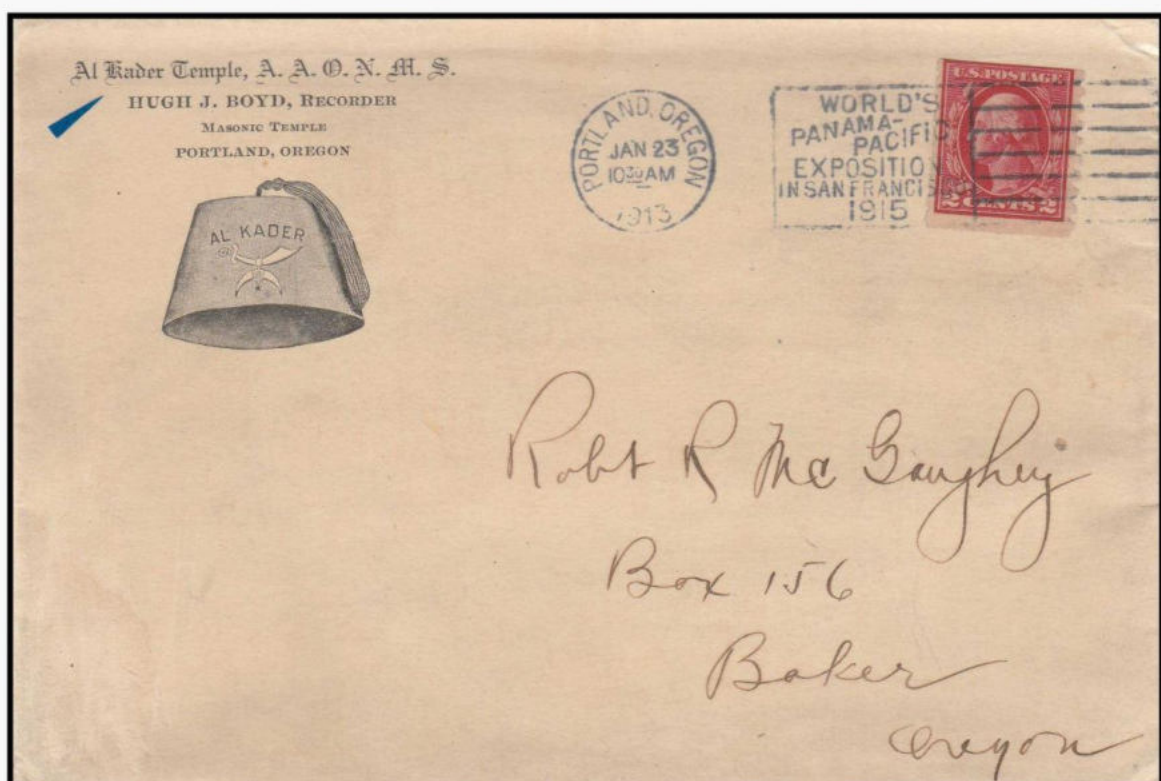 Al Kader Temple, A. A. O. N. M. S.
HUGH J. BOYD, RECORDER
MASONIC TEMPLE
PORTLAND, OREGON
AL KADER
PORTLAND, OREGON
JAN 23
10 30 AM
1913
WORLD'S
PANAMA-
PACIFIC
EXPOSITION
IN SAN FRANCISCO
1915
U.S. POSTAGE
2 CENTS 2
Robt R McGaughey
Box 156
Baker
Oregon